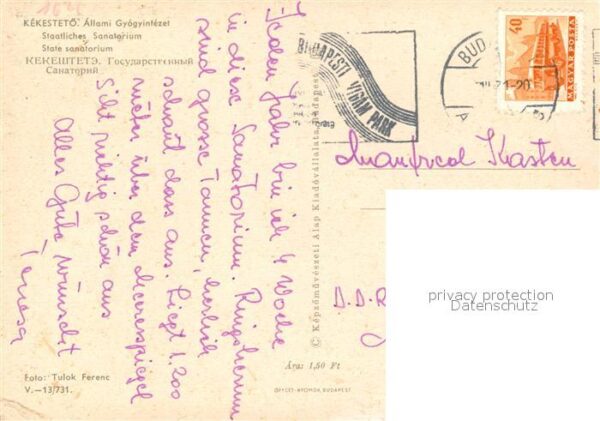 KÉKESTETŐ. Állami Gyógyintézet
Staatliches Sanatorium
State sanatorium
КЕКЕШТЕТЭ. Государственный
Санаторий
Jeden Jahr bin ich 4 Woche
in diese Sanatorium. Ringsherum
sind grosse Tannen, herrlich
schaut dass aus. Liegt 1.200
meter über dem Meeresspiegel
Sieht richtig schön aus
Alles Gute wünscht
Teresa
Foto: Tulok Ferenc
V.—13/731.
© Képzőművészeti Alap Kiadóvállalata, Budapest
Ára: 1,50 Ft
OFFSET-NYOMDA, BUDAPEST
BUDAPESTI VIDÁM PARK
BUDA
71.-20
40
MAGYAR POSTA
Manfred Kasten
D.D.R
privacy protection
Datenschutz